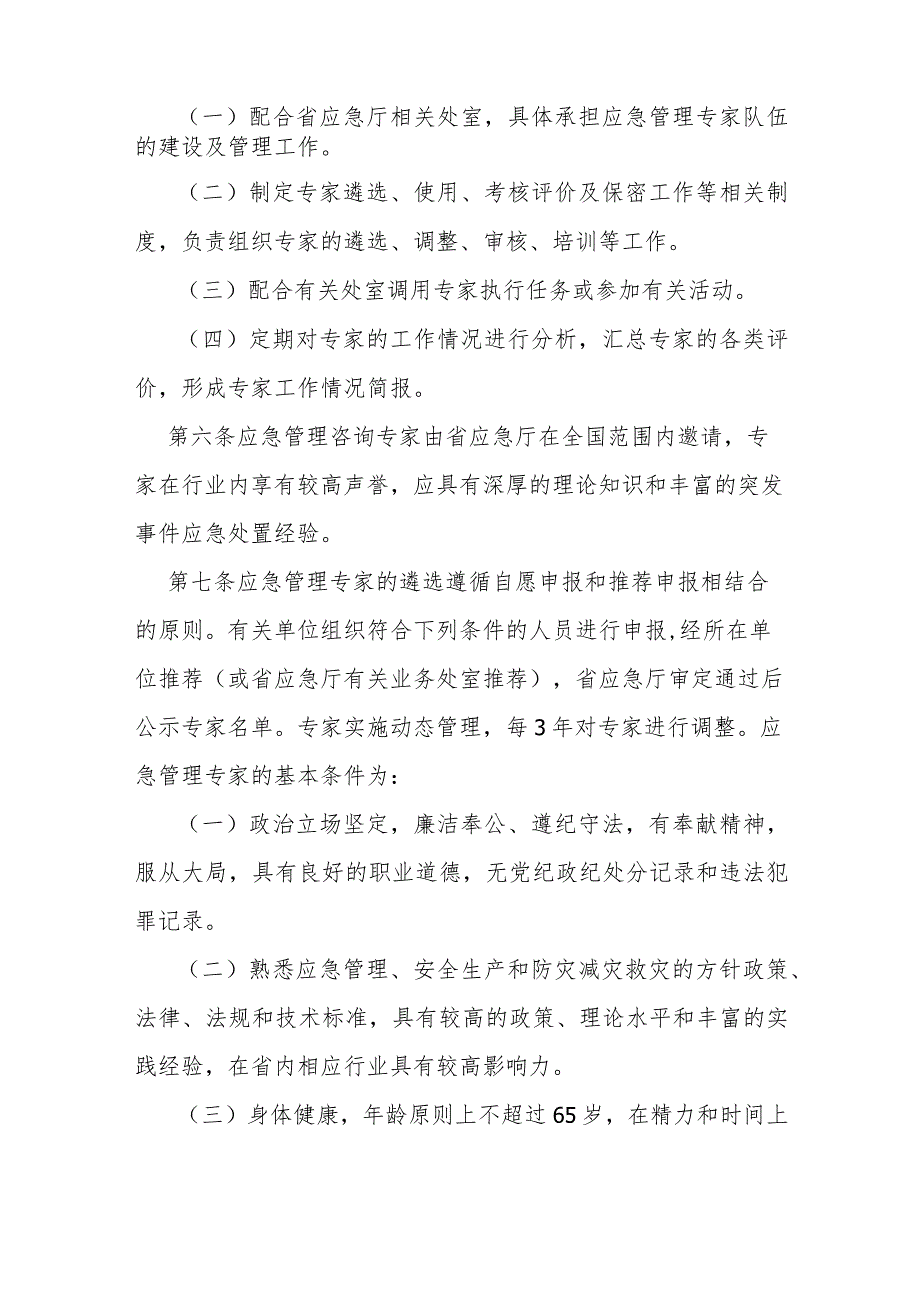 （一）配合省应急厅相关处室，具体承担应急管理专家队伍
的建设及管理工作。
（二）制定专家遴选、使用、考核评价及保密工作等相关制
度，负责组织专家的遴选、调整、审核、培训等工作。
（三）配合有关处室调用专家执行任务或参加有关活动。
（四）定期对专家的工作情况进行分析，汇总专家的各类评
价，形成专家工作情况简报。
第六条应急管理咨询专家由省应急厅在全国范围内邀请，专
家在行业内享有较高声誉，应具有深厚的理论知识和丰富的突发
事件应急处置经验。
第七条应急管理专家的遴选遵循自愿申报和推荐申报相结合
的原则。有关单位组织符合下列条件的人员进行申报,经所在单
位推荐（或省应急厅有关业务处室推荐），省应急厅审定通过后
公示专家名单。专家实施动态管理，每3年对专家进行调整。应
急管理专家的基本条件为：
（一）政治立场坚定，廉洁奉公、遵纪守法，有奉献精神，
服从大局，具有良好的职业道德，无党纪政纪处分记录和违法犯
罪记录。
（二）熟悉应急管理、安全生产和防灾减灾救灾的方针政策、
法律、法规和技术标准，具有较高的政策、理论水平和丰富的实
践经验，在省内相应行业具有较高影响力。
（三）身体健康，年龄原则上不超过65岁，在精力和时间上